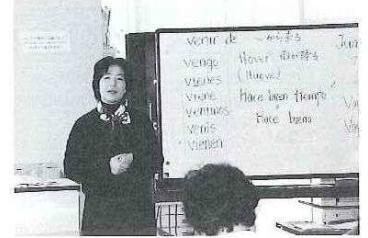 venir de ～から来る
vengo
vienes
viene
venimos
venís
vienen
llover 雨が降る
(llueve)
Hace buen tiempo
Hace bueno
Jua